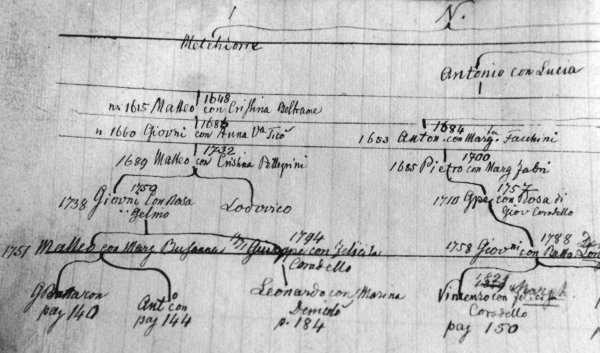 N.
Melchione
Antonio con Lucia
1648
n. 1615 Matteo con Cristina Beltrame
1686
n 1660 Giovni con Anna Va
1684
1653 Anton. con Margta Facchini
1732
1689 Matteo con Cristina Pellegrini
1700
1685 Pietro con Marg Fabri
1750
1738 Giovni con Rosa
Gelmo
Lodovico
1757
1710 Gpe con Rosa di
Giov Coradello
1751 Matteo con Marg
1794
con Felicita
Coradello
1788
1758 Giovni con
G Batta con
pag 140
Anto con
pag 144
Leonardo con Marina
p. 184
Vincenzo con Felicita
Coradello
pag 150